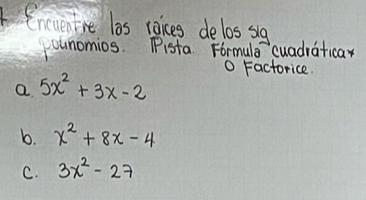 Encuentre las raíces de los sig
polinomios. Pista Fórmula cuadrática
o Factorice.
a. 5x² + 3x - 2
b. x² + 8x - 4
c. 3x² - 27